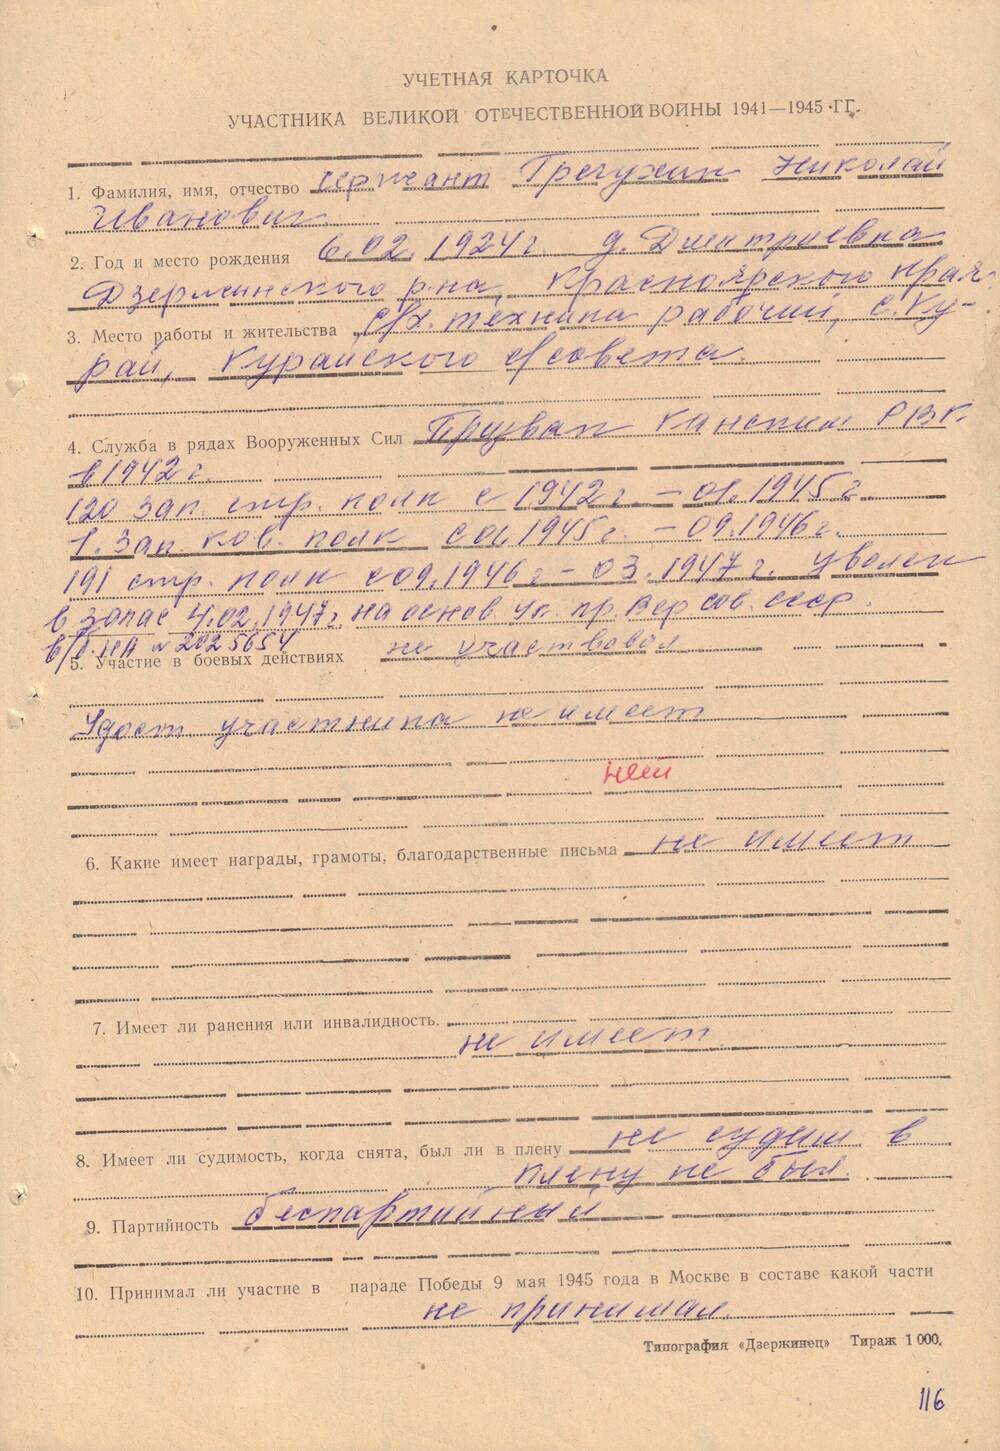 УЧЕТНАЯ КАРТОЧКА
УЧАСТНИКА ВЕЛИКОЙ ОТЕЧЕСТВЕННОЙ ВОЙНЫ 1941—1945 ГГ.
1. Фамилия, имя, отчество сержант Гречухин Николай
Иванович.
2. Год и место рождения 6.02.1924г. д. Дмитриевка
Дзержинского р-на, Красноярского края.
3. Место работы и жительства с/х. техника рабочий, с. Ку-
рай, Курайского с/совета.
4. Служба в рядах Вооруженных Сил Призван Канским РВК.
в 1942г.
120 зап. стр. полк с 1942г. – 01.1945г.
1. зап. кав. полк с 01.1945г. – 09.1946г.
191 стр. полк с 09.1946г – 03.1947г. уволен
в запас 4.02.1947г. на основ. Ук. пр. Вер. сов. ссср.
в/б. НА № 2025654
5. Участие в боевых действиях не участвовал
Удост. участника не имеет
нет
6. Какие имеет награды, грамоты, благодарственные письма не имеет
7. Имеет ли ранения или инвалидность.
не имеет.
8. Имеет ли судимость, когда снята, был ли в плену не судим в
плену не был.
9. Партийность беспартийный
10. Принимал ли участие в параде Победы 9 мая 1945 года в Москве в составе какой части
не принимал.
Типография «Дзержинец» Тираж 1 000.
116